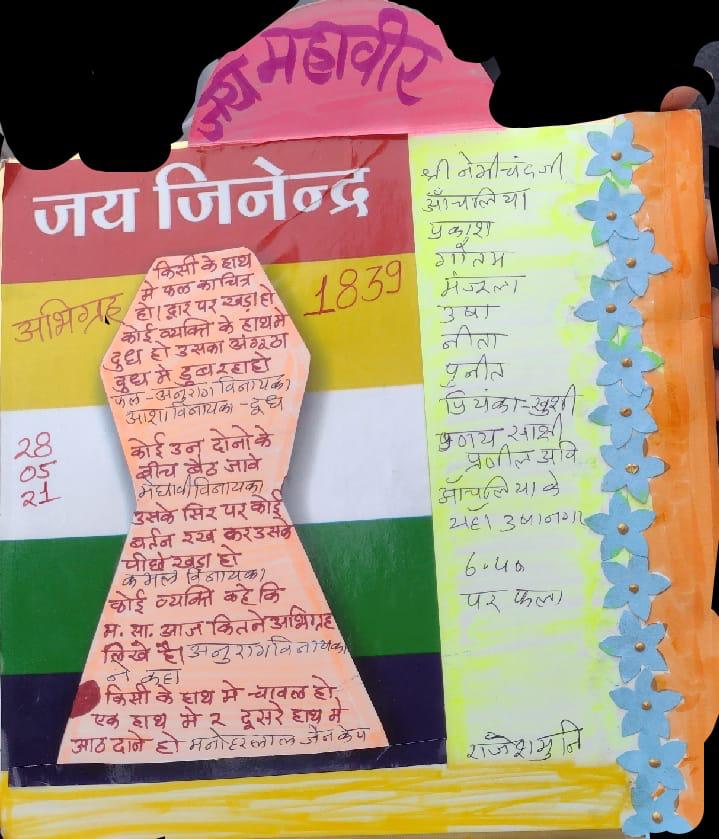 जय महावीर
जय जिनेन्द्र
अभिग्रह
1839
28
05
21
किसी के हाथ
मे फल का चित्र
हो। द्वार पर खड़ा हो
कोई व्यक्ति के हाथ मे
दुध हो उसका अंगूठा
दुध मे डुब रहा हो
फल - अनुराग विनायका
आशा विनायका - दूध
कोई उन दोनो के
बीच बैठ जावे
मेघावी विनायका
उसके सिर पर कोई
बर्तन रख कर उसके
पीछे खड़ा हो
कमल विनायका
कोई व्यक्ति कहे कि
म. सा. आज कितने अभिग्रह
लिखे है। अनुराग विनायका
ने कहा
किसी के हाथ मे चावल हो,
एक हाथ मे २ दूसरे हाथ मे
आठ दाने हो मनोहरलाल जैन
श्री नेमीचंद जी
आँचलिया
प्रकाश
गौतम
मंजुला
उषा
नीता
पुनीत
प्रियंका-खुशी
साक्षी
प्रनील अवि
आँचलिया के
यहाँ उषा नगर
६.५०
पर फला
राजेश मुनि